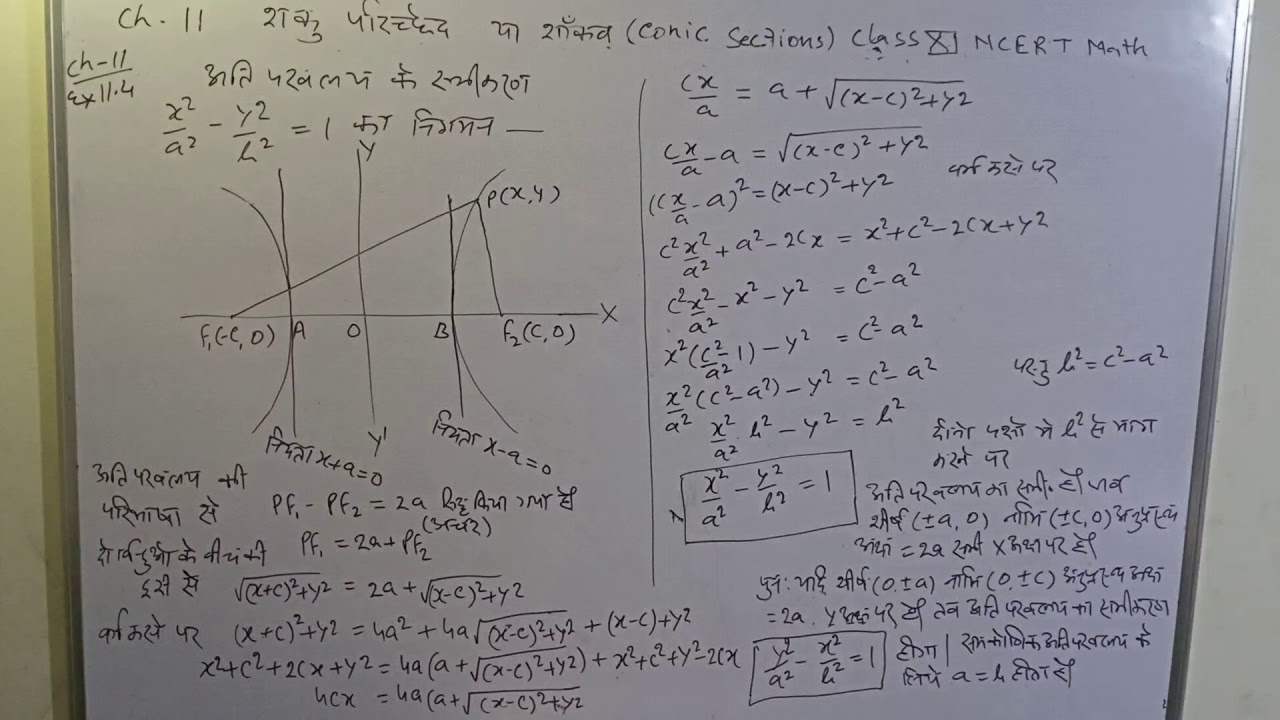 Ch. 11 शंकु परिच्छेद या शॉंकव (Conic Sections) Class XI NCERT Math
Ch-11
Ex 11.4
अतिपरवलय के समीकरण
x²/a² - y²/b² = 1 का निगमन —
Y
P(x,y)
X
F₁(-c,0) A O B F₂(c,0)
Y'
नियता x+a=0
नियता x-a=0
अतिपरवलय की
परिभाषा से PF₁ - PF₂ = 2a सिद्ध किया गया है
(अन्तर)
दो बिन्दुओं के बीच की PF₁ = 2a + PF₂
दूरी से √(x+c)²+y² = 2a + √(x-c)²+y²
वर्ग करने पर (x+c)²+y² = 4a² + 4a√(x-c)²+y² + (x-c)+y²
x²+c²+2cx+y² = 4a(a+√(x-c)²+y²) + x²+c²+y²-2cx
4cx = 4a(a+√(x-c)²+y²
cx/a = a + √(x-c)²+y²
cx/a - a = √(x-c)²+y²
वर्ग करने पर
(cx/a - a)² = (x-c)²+y²
c²x²/a² + a² - 2cx = x²+c²-2cx+y²
c²x²/a² - x² - y² = c²-a²
x²(c²/a² - 1) - y² = c²-a²
x²/a²(c²-a²) - y² = c²-a² परन्तु b² = c²-a²
x²/a² . b² - y² = b²
दोनो पक्षों में b² से भाग
करने पर
x²/a² - y²/b² = 1
अतिपरवलय का समी. है जब
शीर्ष (±a,0) नाभि (±c,0) अनुप्रस्थ
अक्ष = 2a सभी x अक्ष पर है
पुनः यदि शीर्ष (0,±a) नाभि (0,±c) अनुप्रस्थ अक्ष
= 2a y अक्ष पर हों तब अतिपरवलय का समीकरण
y²/a² - x²/b² = 1 होगा | समकोणिक अतिपरवलय के
लिये a = b होता है